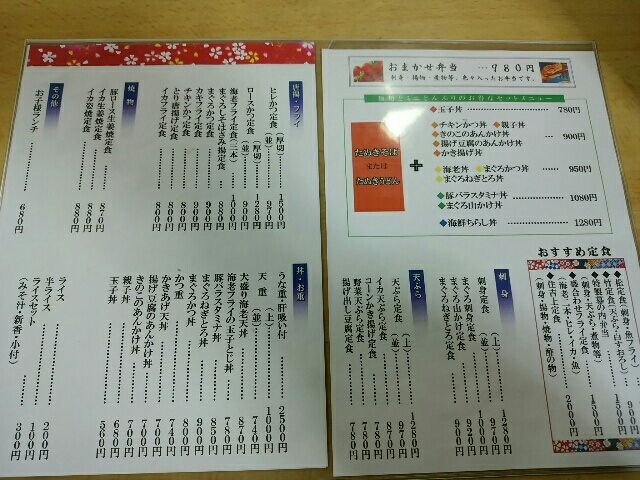 おまかせ弁当 …980円
刺身・揚物・煮物等、色々入ったお弁当です。
たぬきそば
または
たぬきうどん
+
◆玉子丼 780円
◆チキンかつ丼 ◆親子丼
◆きのこのあんかけ丼 900円
◆揚げ豆腐のあんかけ丼
◆かき揚げ丼
◆海老丼 ◆まぐろかつ丼 950円
◆まぐろねぎとろ丼
◆豚バラスタミナ丼 1080円
◆まぐろ山かけ丼
◆海鮮ちらし丼 1280円
おすすめ定食
◆松定食(刺身・魚フライ)
◆竹定食(天ぷら・白すおろし) 1500円
◆特製幕の内弁当
(刺身・天ぷら・煮物等) 1500円
◆盛合わせフライ定食
(海老二本・ヒレ・イカ・魚) 2000円
◆住吉上定食
(刺身・揚物・焼物・酢の物)
刺身
刺身定食 (上) 1280円
(並) 970円
まぐろ刺身定食 1000円
まぐろ山かけ定食 920円
まぐろねぎとろ定食 900円
天ぷら
天ぷら定食 (上) 1280円
(並) 970円
イカ天ぷら定食 870円
コーンかき揚げ定食 780円
野菜天ぷら定食 780円
揚げ出し豆腐定食 780円
唐揚・フライ
ヒレかつ定食 (厚切)
(並) 970円
ロースかつ定食 (厚切) 1280円
(並) 900円
海老フライ定食(三本) 1000円
まぐろしそはさみ揚定食 900円
まぐろかつ定食 900円
カキフライ定食 900円
チキンかつ定食 800円
とり唐揚げ定食 800円
イカフライ定食 800円
焼物
豚ロース生姜焼定食 870円
イカ生姜焼定食 880円
イカ姿焼定食 880円
その他
お子様ランチ 680円
丼・お重
うな重(肝吸い付) 2500円
天重 (上) 1000円
(並) 740円
大盛り海老天丼 870円
海老フライの玉子とじ丼 780円
豚バラスタミナ丼 850円
まぐろねぎとろ丼 900円
まぐろかつ丼 800円
かつ重 740円
かきあげ天丼 740円
揚げ豆腐のあんかけ丼 700円
きのこのあんかけ丼 700円
親子丼 680円
玉子丼 560円
ライス 200円
半ライス 100円
ライスセット
(みそ汁・新香・小付) 300円